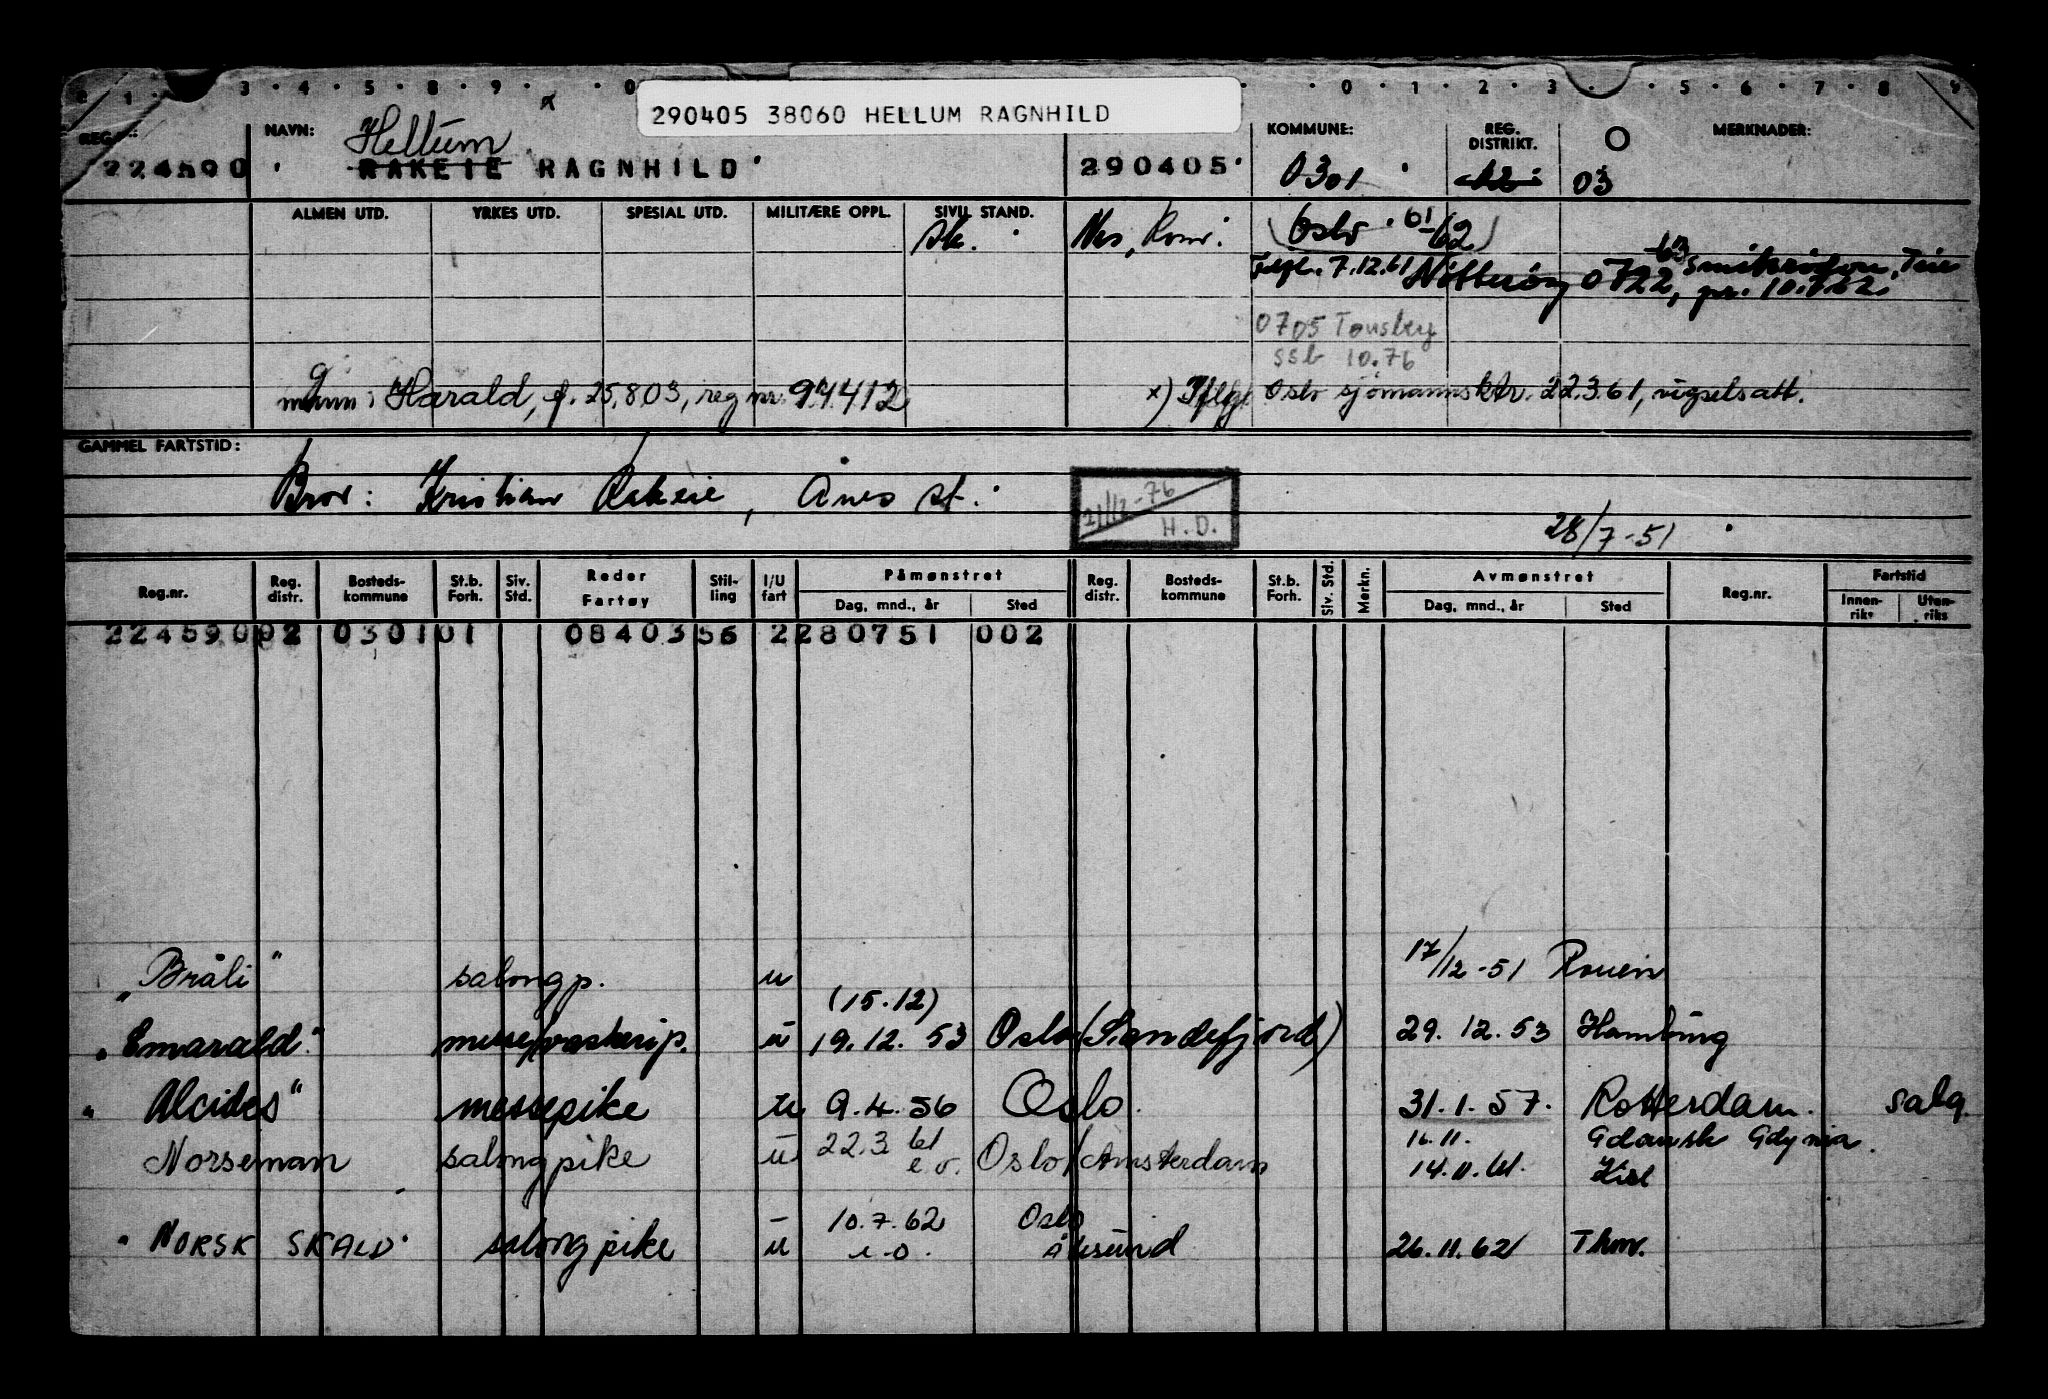 290405 38060 HELLUM RAGNHILD
REG.NR.: NAVN: KOMMUNE: REG. DISTRIKT. MERKNADER:
Hellum
224590 RAKEIE RAGNHILD 290405 0301 12 03
ALMEN UTD. YRKES UTD. SPESIAL UTD. MILITÆRE OPPL. SIVIL STAND.
sk. Nes, Rom. (Oslo 61-62)
7.12.61 Nøtterøy 0722, 63
0705 Tønsberg
ssb 10.76
g
mann: Harald, f. 25.8.03, reg nr. 94412
x) Iflg. Oslo sjømannsktr. 22.3.61, vigselsatt.
GAMMEL FARTSTID:
Bror: Kristian Rakeie, Ånes st.
21/12-76
H.D.
28/7-51
Reg.nr. Reg. distr. Bosteds-kommune St.b. Forh. Siv. Std. Reder Fartøy Stil-ling I/U fart Påmønstret Dag, mnd., år Sted Reg. distr. Bosteds-kommune St.b. Forh. Siv. Std. Merkn. Avmønstret Dag, mnd., år Sted Reg.nr. Fartstid Innen-riks Uten-riks
224590 02 0301 01 08403 56 2 280751 002
"Bråli" salongp. u 17/12-51 Rouen
(15.12)
"Emarald" messe/vaskerip. u 19.12.53 Oslo (Sandefjord) 29.12.53 Hamburg
"Alcides" messepike u 9.4.56 Oslo. 31.1.57. Rotterdam. salg.
Norseman salongpike u 22.3 61 e.o. Oslo/Amsterdam 16.11. Gdansk Gdynia.
14.11.61. Kiel
"NORSK SKALD" salongpike u 10.7.62 Oslo
e.o. Ålesund 26.11.62 Thm.